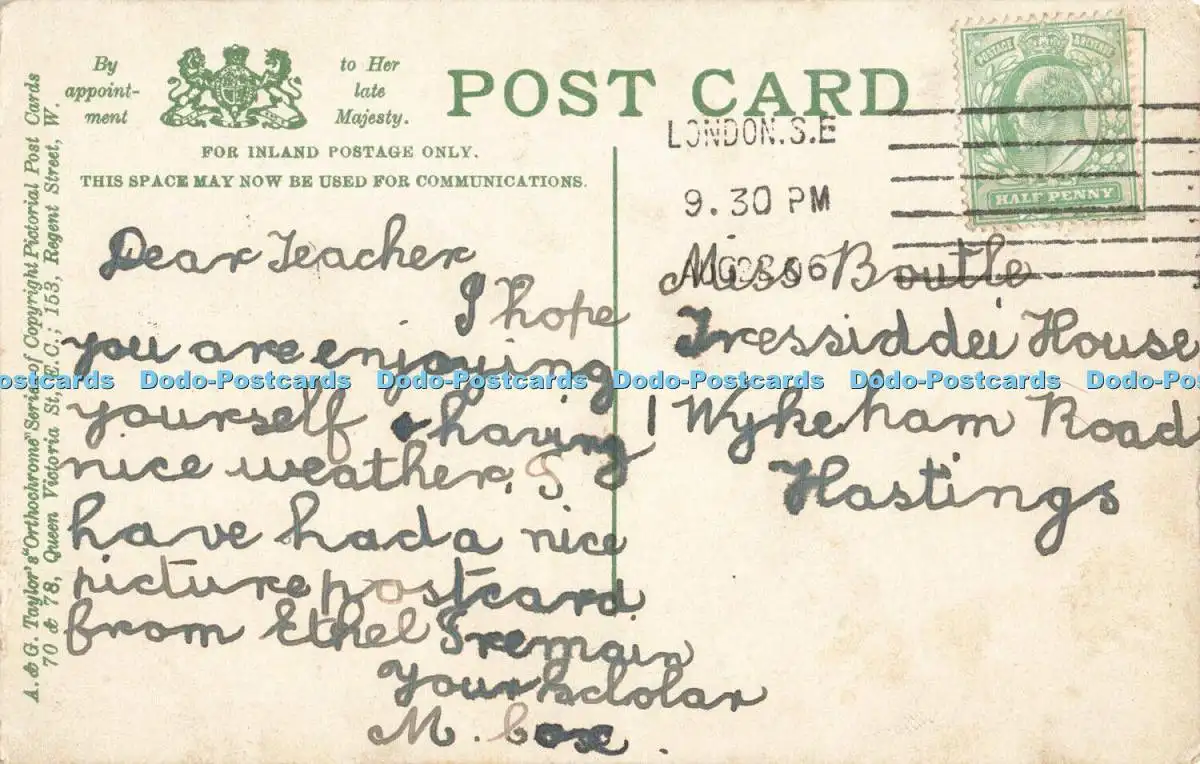 By appoint-ment
to Her late Majesty.
POST CARD
FOR INLAND POSTAGE ONLY.
THIS SPACE MAY NOW BE USED FOR COMMUNICATIONS.
A. & G. Taylor's "Orthochrome" Series of Copyright Pictorial Post Cards
70 & 78, Queen Victoria St, E.C.; 153, Regent Street, W.
POSTAGE REVENUE
HALF PENNY
LONDON.S.E
9.30 PM
06
Dear Teacher
I hope
you are enjoying
yourself & having
nice weather. I
have had a nice
picture postcard
from Ethel I remain
Your scholar
M. Cox.
Miss Boutle
House
1 Wykeham Road
Hastings
Dodo-Postcards Dodo-Postcards Dodo-Postcards Dodo-Postcards Dodo-Postcards Dodo-Postcards